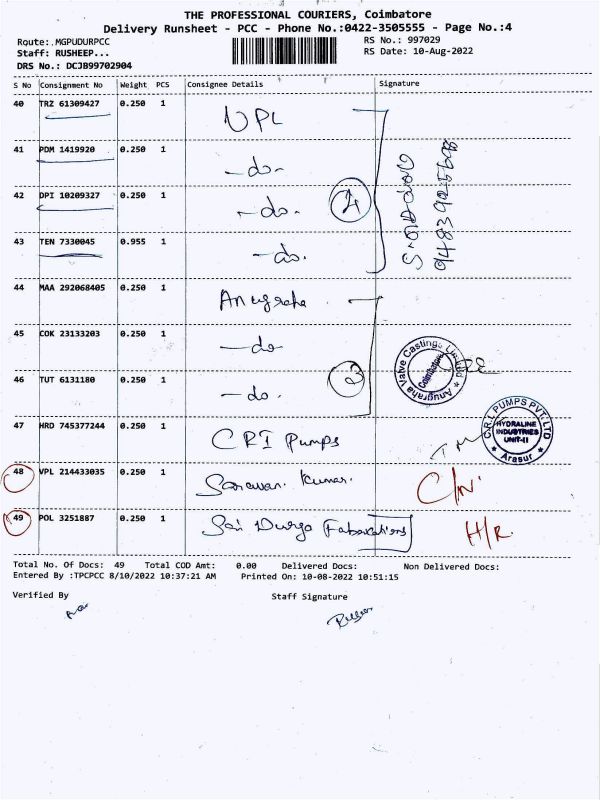 THE PROFESSIONAL COURIERS, Coimbatore
Delivery Runsheet - PCC - Phone No.:0422-3505555 - Page No.:4
Route:.MGPUDURPCC
RS No.: 997029
Staff: RUSHEEP...
RS Date: 10-Aug-2022
DRS No.: DCJB99702904
S No Consignment No Weight PCS Consignee Details Signature
40 TRZ 61309427 0.250 1 UPL
41 PDM 1419920 0.250 1 -do-
42 DPI 10209327 0.250 1 -do.
4
43 TEN 7330045 0.955 1 -do.
44 MAA 292068405 0.250 1 Anugraha
45 COK 23133203 0.250 1 -do-
46 TUT 6131180 0.250 1 -do.
3
Anugraha Valve Castings Limited
Coimbatore
47 HRD 745377244 0.250 1 CRI Pumps
C.R.I. PUMPS PVT. LTD
HYDRALINE
INDUSTRIES
UNIT-II
Arasur
48 VPL 214433035 0.250 1 Saravan. Kumar. C/N.
49 POL 3251887 0.250 1 Sai Durga Fabrications H/R.
Total No. Of Docs: 49 Total COD Amt: 0.00 Delivered Docs: Non Delivered Docs:
Entered By :TPCPCC 8/10/2022 10:37:21 AM Printed On: 10-08-2022 10:51:15
Verified By Staff Signature